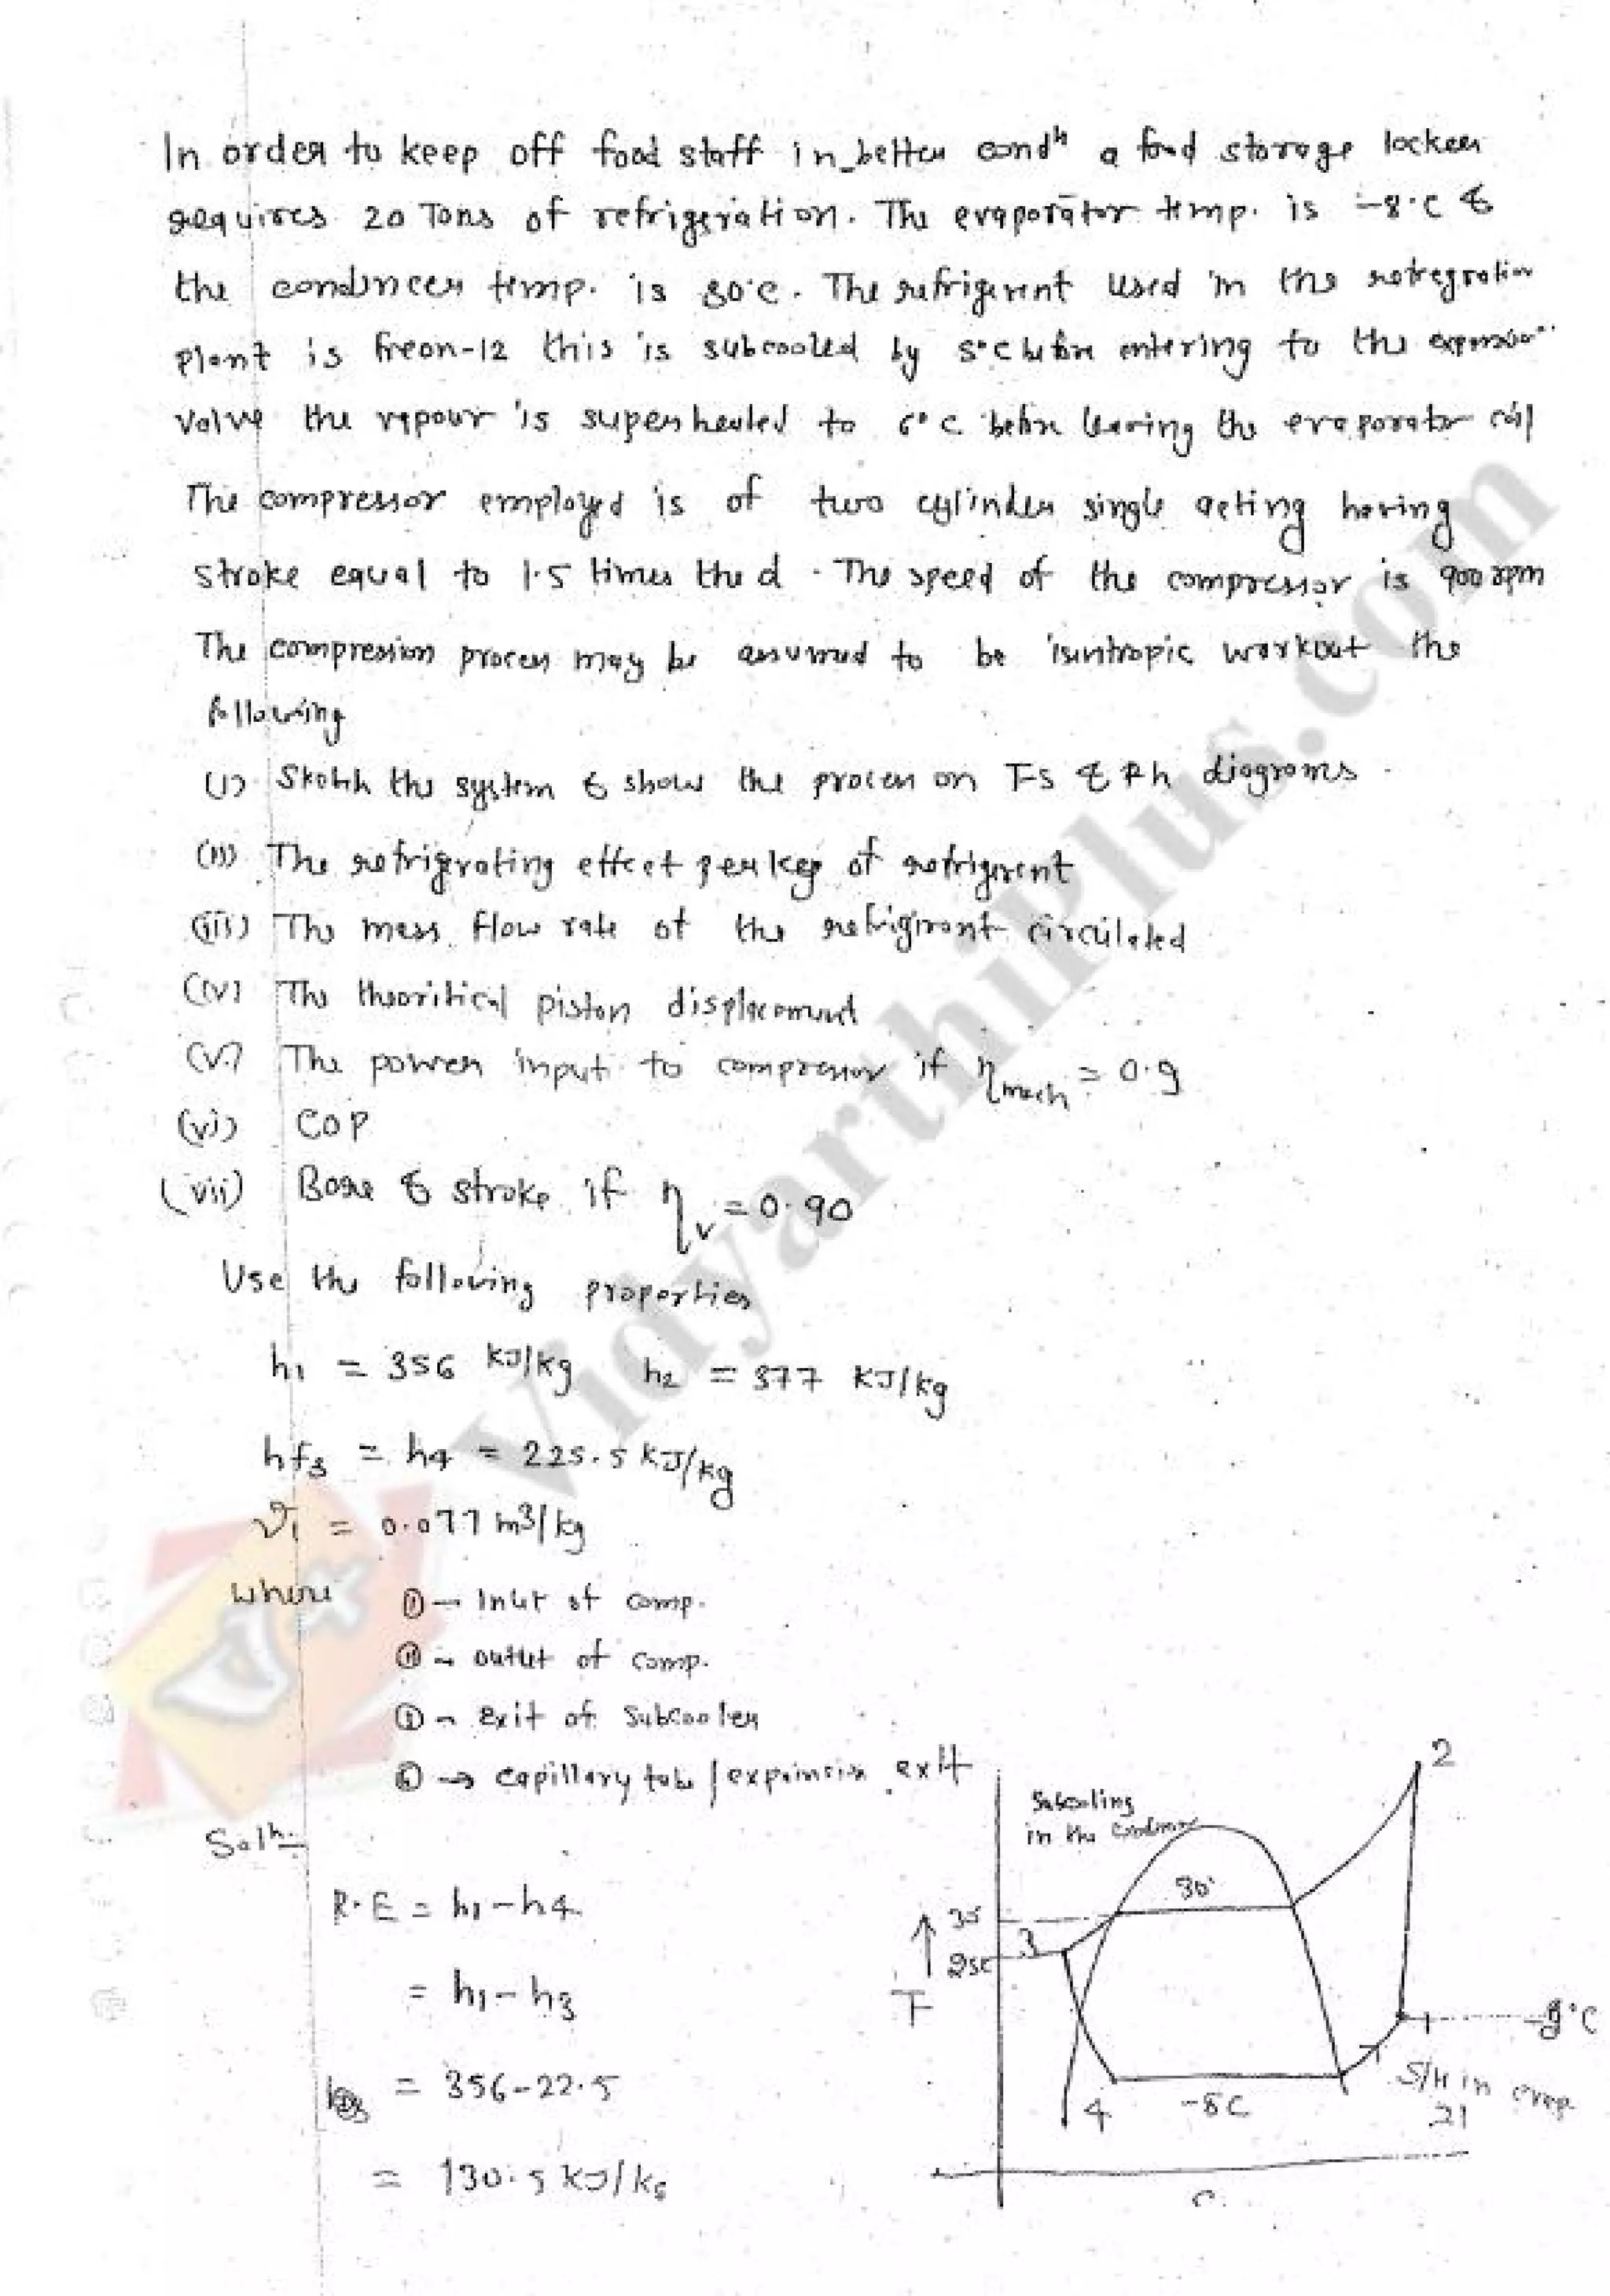 In order to keep off food stuff in better condn a food storage locker
requires 20 Tons of refrigeration. The evaporator temp. is -8°C &
the condencer temp. is 30°C. The refrigerent used in the
plant is freon-12 this is subcooled by 5°C before entering to the
valve the vapour is superheated to 6°C before leaving the evaporator coil
The compressor employed is of two cylinder single acting having
stroke equal to 1.5 times the d. The speed of the compressor is 900 rpm
The compression process may be assumed to be isentropic workout the
following
(i) Sketch the system & show the process on T-S & P-h diagrams.
(ii) The refrigerating effect per kg of refrigerent
(iii) The mass flow rate of the refrigirant circulated
(iv) The theoritical piston displacement
(v) The power input to compressor if ηmech = 0.9
(vi) COP
(vii) Bore & stroke if ηv = 0.90
Use the following properties
h1 = 356 KJ/kg h2 = 377 KJ/kg
hf3 = h4 = 225.5 KJ/kg
v1 = 0.077 m3/kg
where ① – Inlet of comp.
② – outlet of comp.
③ – exit of subcooler
→ capillary tube / expansion exit
Soln:
R.E = h1 - h4
= h1 - h3
= 356 - 22.5
= 130.5 KJ/kg
2
Subcooling
in the condenser
30°
3
T
1
4
-8C
S/H in evap
VidyarthiPlus.com
V+